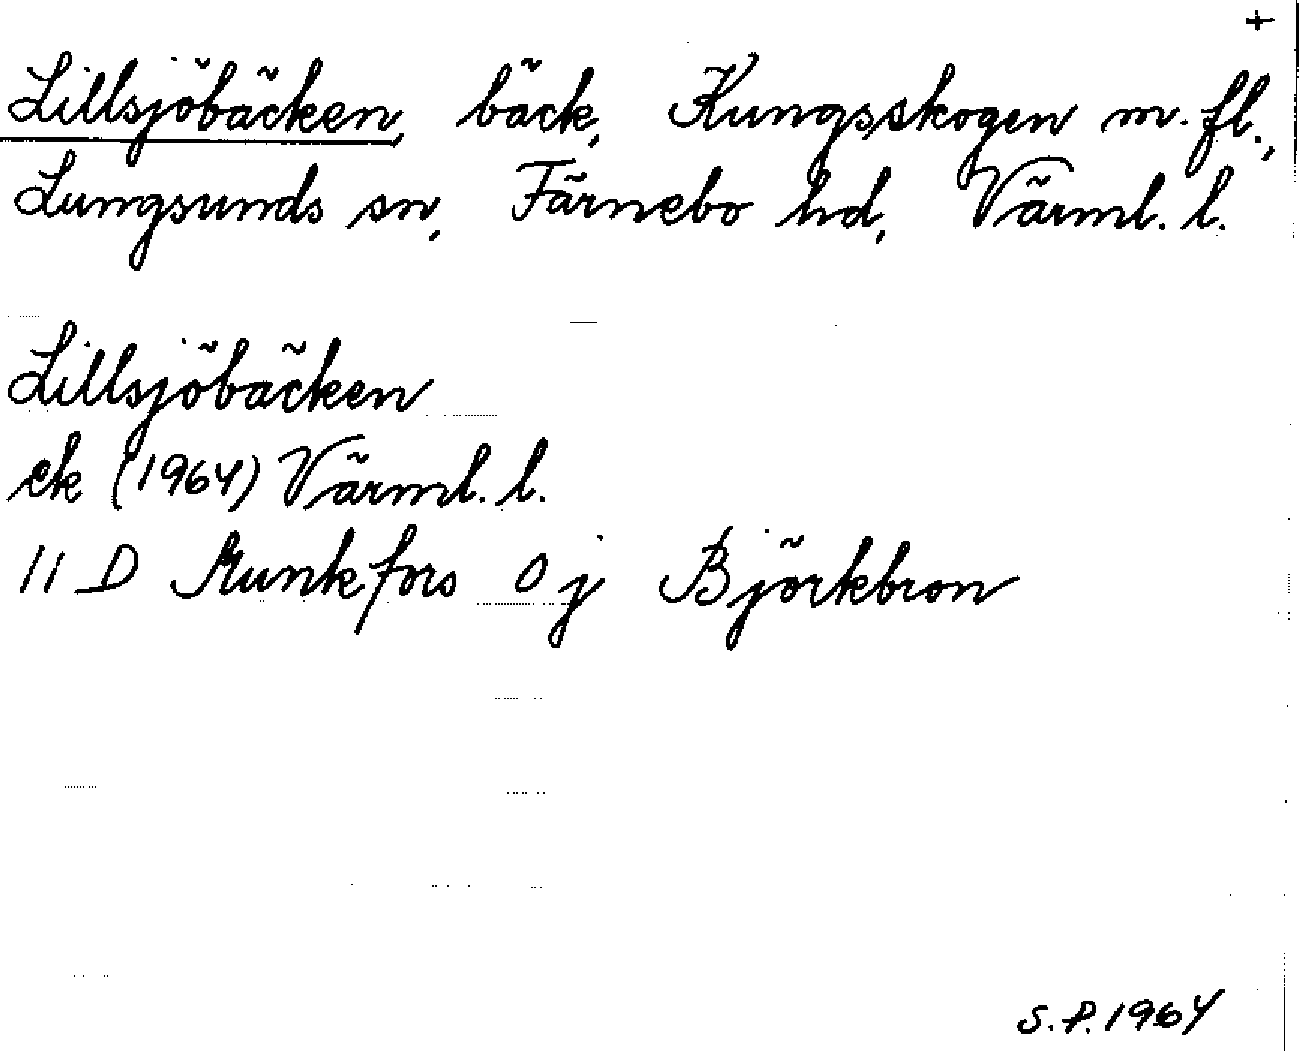 +
Lillsjöbäcken, bäck, Kungsskogen m. fl.,
Lungsunds sn, Färnebo hd, Värml. l.
Lillsjöbäcken
ek (1964) Värml. l.
11 D Munkfors 0 j Björkbron
S.P. 1964